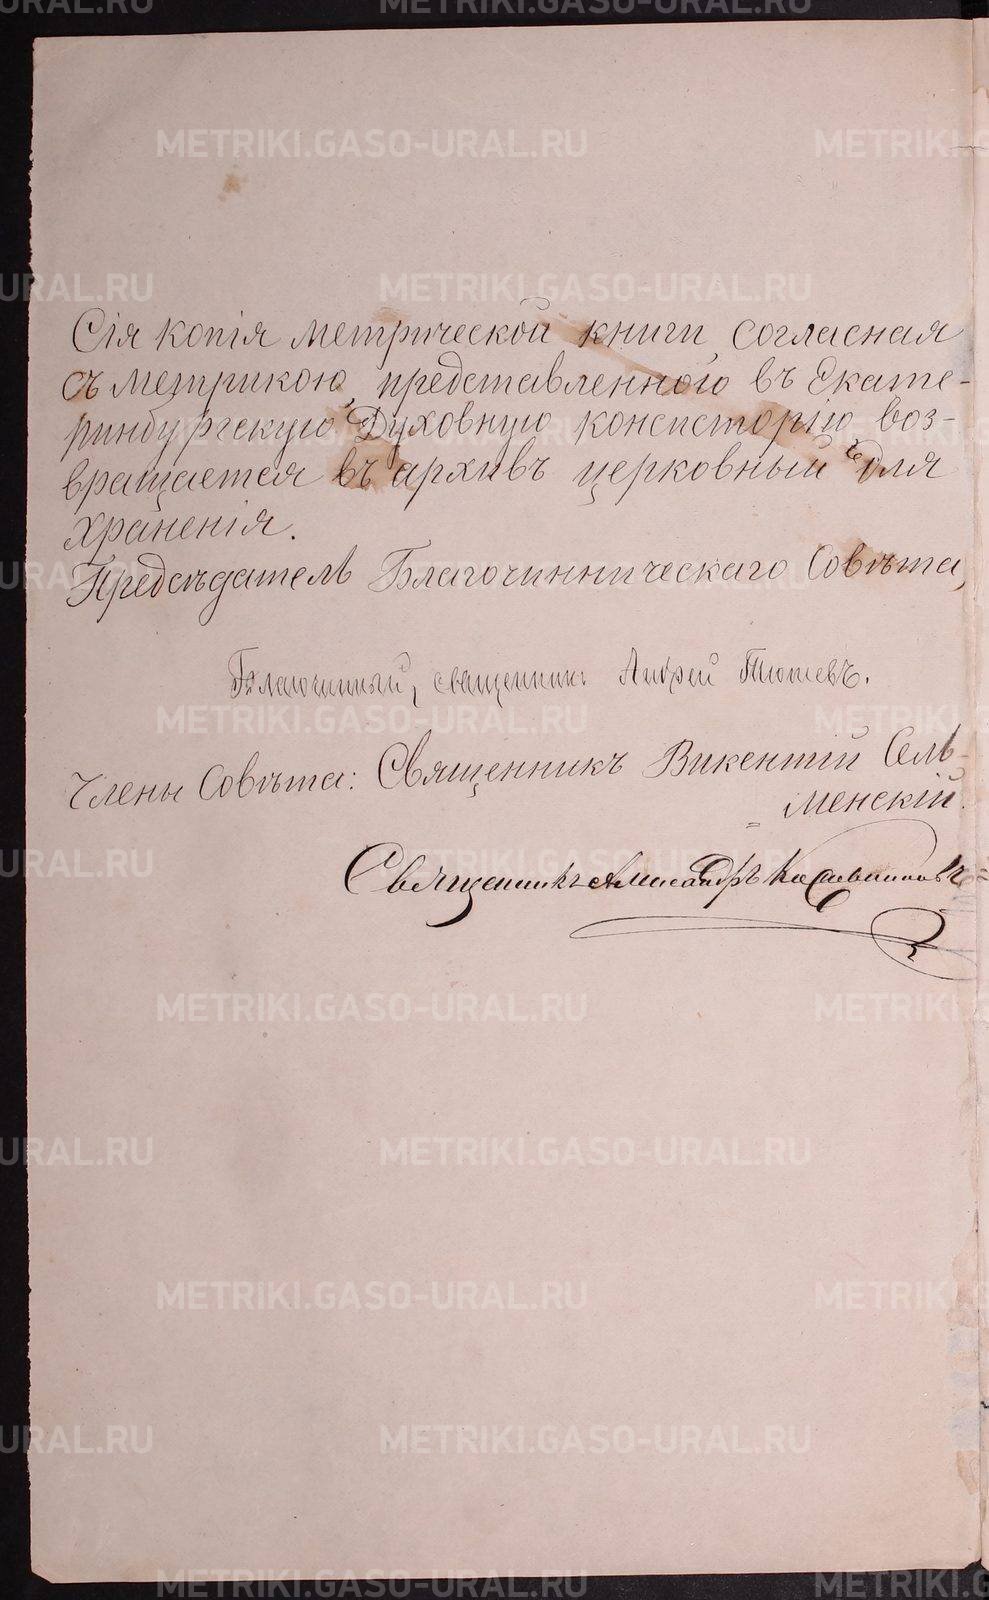 Сія копія метрической книги, согласная
съ метрикою, представленною въ Екате-
ринбургскую Духовную консисторію воз-
вращается въ архивъ церковный для
храненія.
Предсѣдатель Благочинническаго Совѣта,
Благочинный, священникъ Андрей
Члены Совѣта: Священникъ Викентій Сель-
менскій.
Священникъ Александръ
METRIKI.GASO-URAL.RU